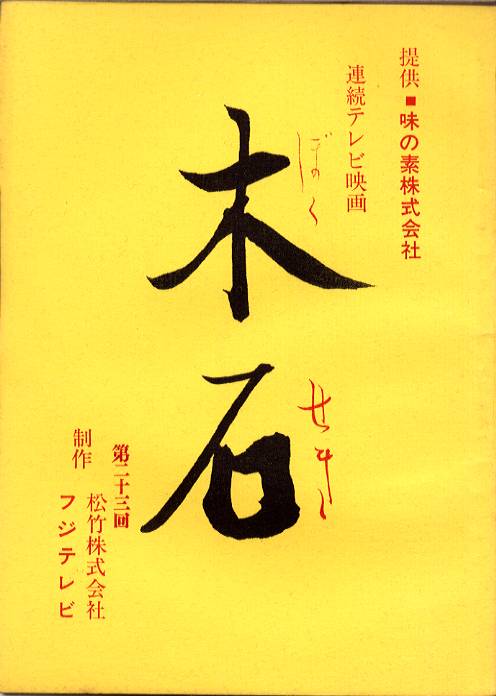 提供■味の素株式会社
連続テレビ映画
ぼく
木
せき
石
第二十三回
制作
松竹株式会社
フジテレビ